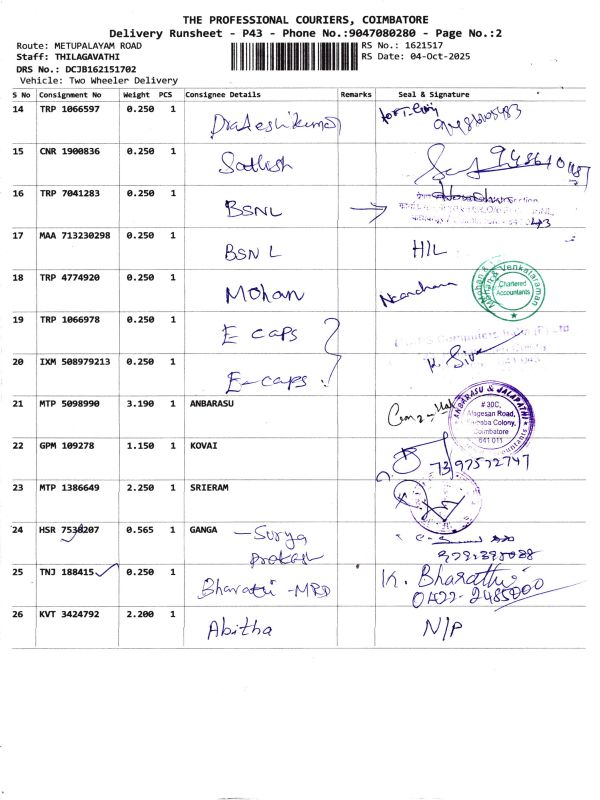 THE PROFESSIONAL COURIERS, COIMBATORE
Delivery Runsheet - P43 - Phone No.:9047080280 - Page No.:2
Route: METUPALAYAM ROAD RS No.: 1621517
Staff: THILAGAVATHI RS Date: 04-Oct-2025
DRS No.: DCJB162151702
Vehicle: Two Wheeler Delivery
S No Consignment No Weight PCS Consignee Details Remarks Seal & Signature
14 TRP 1066597 0.250 1
15 CNR 1900836 0.250 1 Sathesh
16 TRP 7041283 0.250 1 BSNL
17 MAA 713230298 0.250 1 BSNL HIL
18 TRP 4774920 0.250 1 Mohan
Venkataraman
Chartered
Accountants
19 TRP 1066978 0.250 1 E caps
20 IXM 508979213 0.250 1 E-caps K. Siva
21 MTP 5098990 3.190 1 ANBARASU
ANBARASU & JALAPATHI
# 30C,
Colony,
Coimbatore
641 011
22 GPM 109278 1.150 1 KOVAI
23 MTP 1386649 2.250 1 SRIERAM
24 HSR 7538207 0.565 1 GANGA - Surya
Prakash
25 TNJ 188415 0.250 1 Bharathi - MRD K. Bharathi
0422-2485000
26 KVT 3424792 2.200 1 Abitha N/P